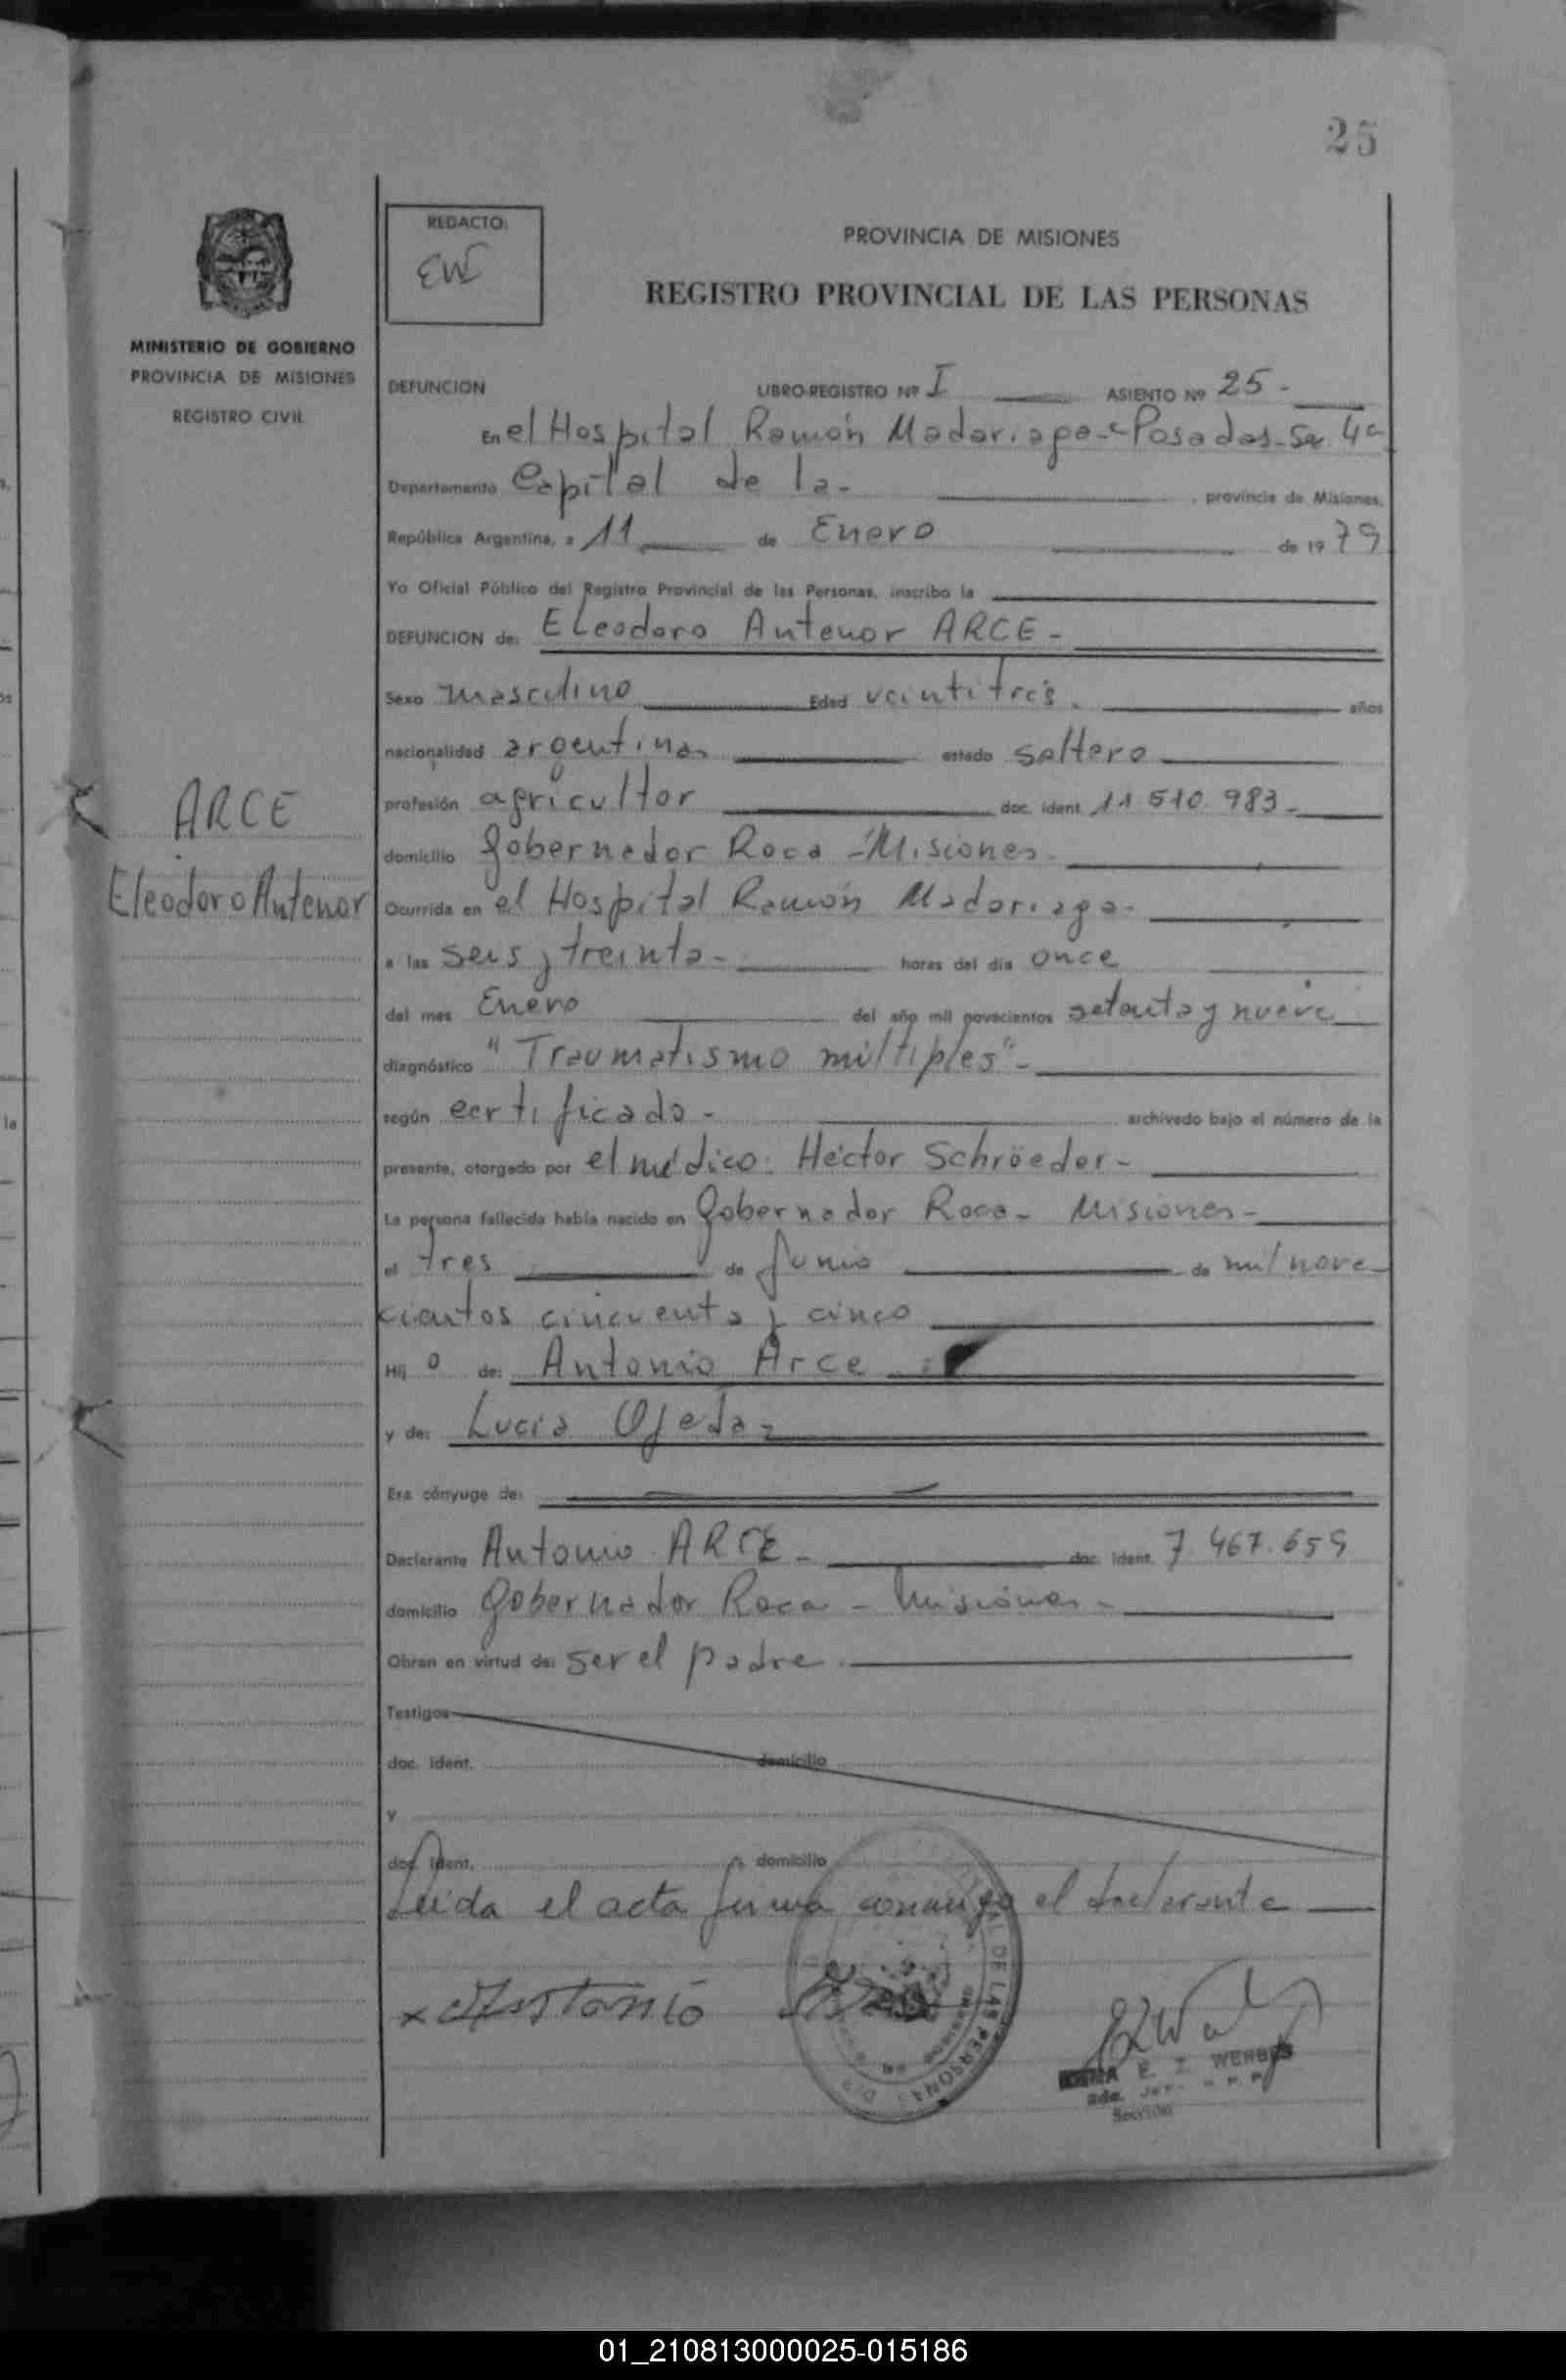 25
REDACTO:
EW
PROVINCIA DE MISIONES
REGISTRO PROVINCIAL DE LAS PERSONAS
MINISTERIO DE GOBIERNO
PROVINCIA DE MISIONES
REGISTRO CIVIL
DEFUNCION LIBRO-REGISTRO Nº I ASIENTO Nº 25-
En el Hospital Ramón Madariaga - Posadas - Se. 4a
Departamento Capital de la- , provincia de Misiones,
República Argentina, a 11 de Enero de 1979
Yo Oficial Público del Registro Provincial de las Personas, inscribo la
DEFUNCION de: Eleodoro Antenor ARCE-
Sexo masculino Edad veintitrés. años
nacionalidad argentina estado soltero
profesión agricultor doc. ident. 11 510. 983-
domicilio Gobernador Roca - Misiones
ARCE
Eleodoro Antenor
Ocurrida en el Hospital Ramón Madariaga-
a las seis y treinta- horas del día once
del mes Enero del año mil novecientos setenta y nueve
diagnóstico "Traumatismo múltiples"-
según certificado- archivado bajo el número de la
presente, otorgado por el médico: Héctor Schröeder-
La persona fallecida había nacido en Gobernador Roca- Misiones-
el tres de Junio de mil nove
cientos cincuenta y cinco
Hij o de: Antonio Arce
y de: Lucia Ojeda-
Era cónyuge de:
Declarante Antonio ARCE- doc. ident. 7. 467. 659
domicilio Gobernador Roca - Misiones-
Obran en virtud de: ser el padre.
Testigos
doc. ident. domicilio
y
doc. ident. domicilio
Leida el acta firma conmigo el declarante
x Antonio Arce
DE LAS PERSONAS
E. I. WERBES
Sección
01_210813000025-015186